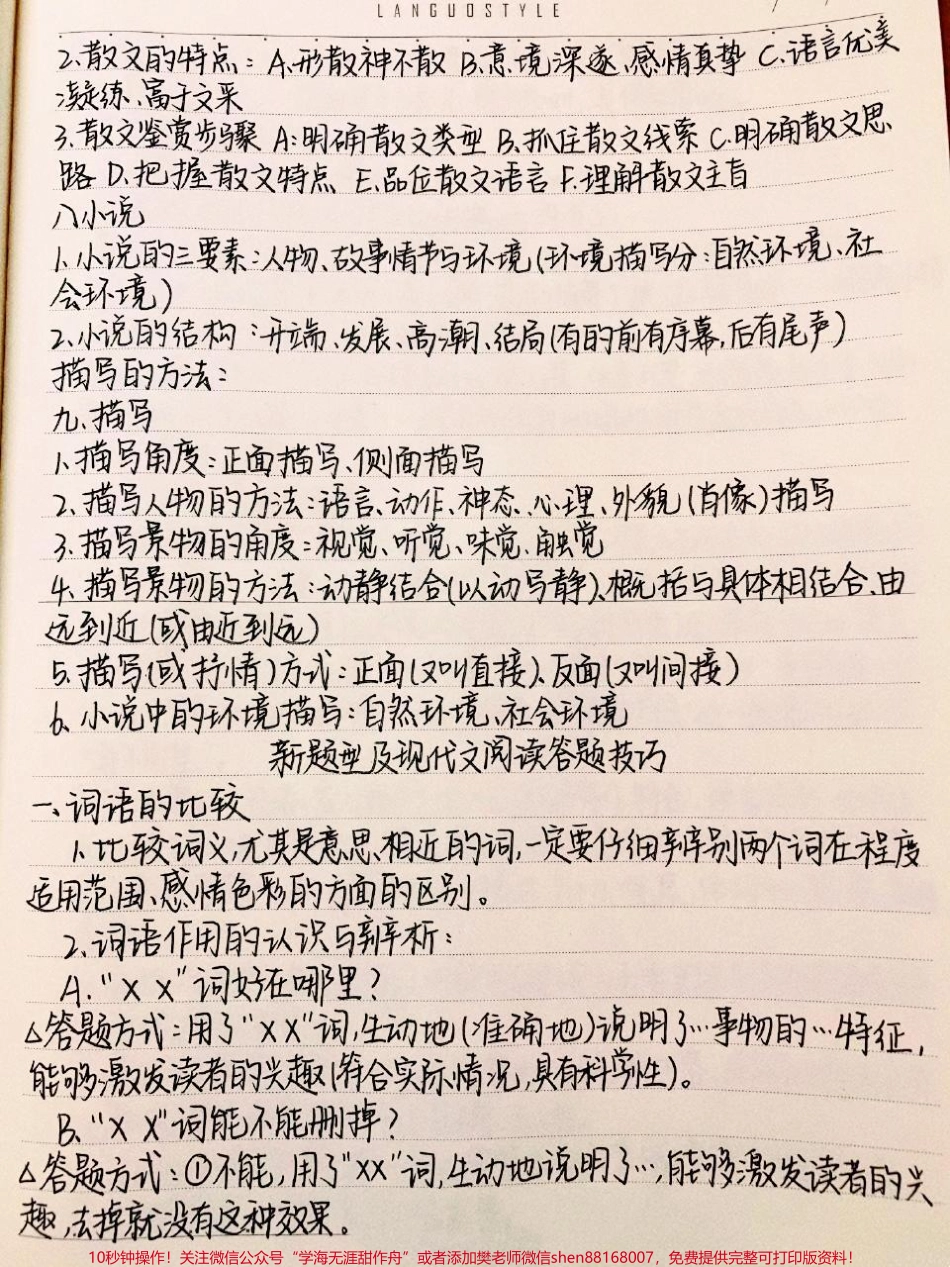 LANGUOSTYLE
2.散文的特点：A.形散神不散 B.意境深邃、感情真挚 C.语言优美
凝练、富于文采
3.散文鉴赏步骤 A:明确散文类型 B.抓住散文线索 C.明确散文思
路 D.把握散文特点 E.品位散文语言 F.理解散文主旨
八小说
1.小说的三要素:人物、故事情节与环境(环境描写分:自然环境、社
会环境)
2.小说的结构:开端、发展、高潮、结局(有的前有序幕,后有尾声)
描写的方法:
九、描写
1.描写角度:正面描写、侧面描写
2.描写人物的方法:语言、动作、神态、心理、外貌(肖像)描写
3.描写景物的角度:视觉、听觉、味觉、触觉
4.描写景物的方法:动静结合(以动写静)、概括与具体相结合、由
远到近(或由近到远)
5.描写(或抒情)方式:正面(又叫直接)、反面(又叫间接)
6.小说中的环境描写:自然环境、社会环境
新题型及现代文阅读答题技巧
一、词语的比较
1.比较词义,尤其是意思相近的词,一定要仔细辨别两个词在程度
适用范围、感情色彩的方面的区别。
2.词语作用的认识与辨析:
A.“X X”词好在哪里?
△答题方式:用了“XX”词,生动地(准确地)说明了…事物的…特征,
能够激发读者的兴趣(符合实际情况,具有科学性)。
B.“X X”词能不能删掉?
△答题方式:①不能,用了“XX”词,生动地说明了…,能够激发读者的兴
趣,去掉就没有这种效果。
10秒钟操作！关注微信公众号“学海无涯甜作舟”或者添加樊老师微信shen88168007，免费提供完整可打印版资料！